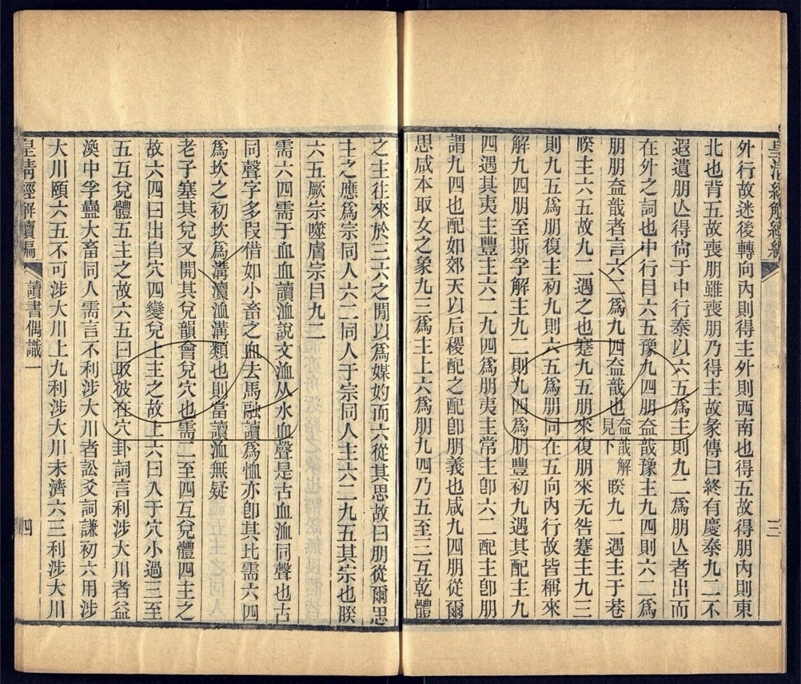 皇清經解續編
三
外行故迷後轉向內則得主外則西南也得五故得朋內則東
北也背五故喪朋雖喪朋乃得主故彖傳曰終有慶泰九二不
遐遺朋亾得尙于中行泰以六五爲主則九二爲朋亾者出而
在外之詞也中行目六五豫九四朋盍哉豫主九四則六二爲
朋朋盍哉者言六二爲九四盍哉也盍哉解見下睽九二遇主于巷
睽主六五故九二遇之也蹇九五朋來復朋來无咎蹇主九三
則九五爲朋復主初九則六五爲朋同在五向內行故皆稱來
解九四朋至斯孚解主九二則九四爲朋豐初九遇其配主九
四遇其夷主豐主六二九四爲朋夷主常主卽六二配主卽朋
謂九四也配如郊天以后稷配之配卽朋義也咸九四朋從爾
思咸本取女之象九三爲主上六爲朋九四乃五至三互乾體
之主往來於三六之閒以爲媒妁而六從其思故曰朋從爾思
主之應爲宗同人六二同人于宗同人主六二九五其宗也睽
六五厥宗噬膚宗目九二
需六四需于血血讀洫說文洫从水血聲是古血洫同聲也古
同聲字多叚借如小畜之血去馬融讀爲恤亦卽其比需六四
爲坎之初坎爲溝瀆洫溝類也則當讀洫無疑
老子塞其兌又開其兌韻會兌穴也需二至四互兌體四主之
故六四曰出自穴四變兌上主之故上六曰入于穴小過三至
五互兌體五主之故六五曰取彼在穴卦詞言利涉大川者益
渙中孚蠱大畜同人需言不利涉大川者訟爻詞謙初六用涉
大川頤六五不可涉大川上九利涉大川未濟六三利涉大川
皇淸經解續編
讀書偶識一
四